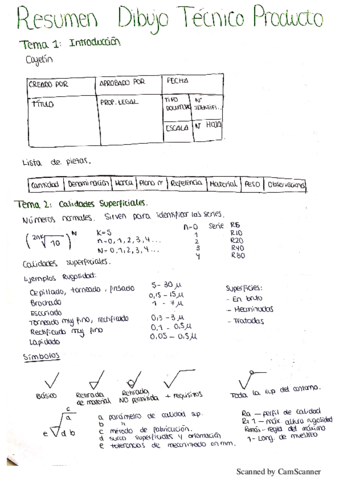 Resumen Dibujo Técnico Producto
Tema 1: Introducción
Cajetín
CREADO POR
APROBADO POR
FECHA
TÍTULO
PROP. LEGAL
TIPO
Nº
ESCALA
Nº HOJA
Lista de piezas.
Cantidad Denominación Marca Plano nº Referencia Material Peso Observaciones
Tema 2: Calidades Superficiales.
Números normales. Sirven para identificar las series.
K=5
n=0, 1, 2, 3, 4...
N=0, 1, 2, 3, 4...
n=0 Serie R5
1 R10
2 R20
3 R40
4 R80
Calidades superficiales.
Ejemplos Rugosidad:
Cepillado, torneado, fresado
Brochado 0,15 - 15 µ
Escariado
Torneado muy fino, rectificado
Rectificado muy fino 0,1 - 0,5 µ
Lapidado 0,05 - 0,5 µ
Superficies:
- En bruto
- Mecanizadas
- Tratadas
Símbolos
Básico
Retirada
de material
Retirada
NO permitida
+ requisitos
Toda la sup del contorno.
a
c
e d b
a parámetro de calidad sup.
b "
c método de fabricación.
d surco superficiales y orientación
e tolerancias de mecanizado en mm.
Ra - perfil de calidad
- Long. de muestreo
Scanned by CamScanner